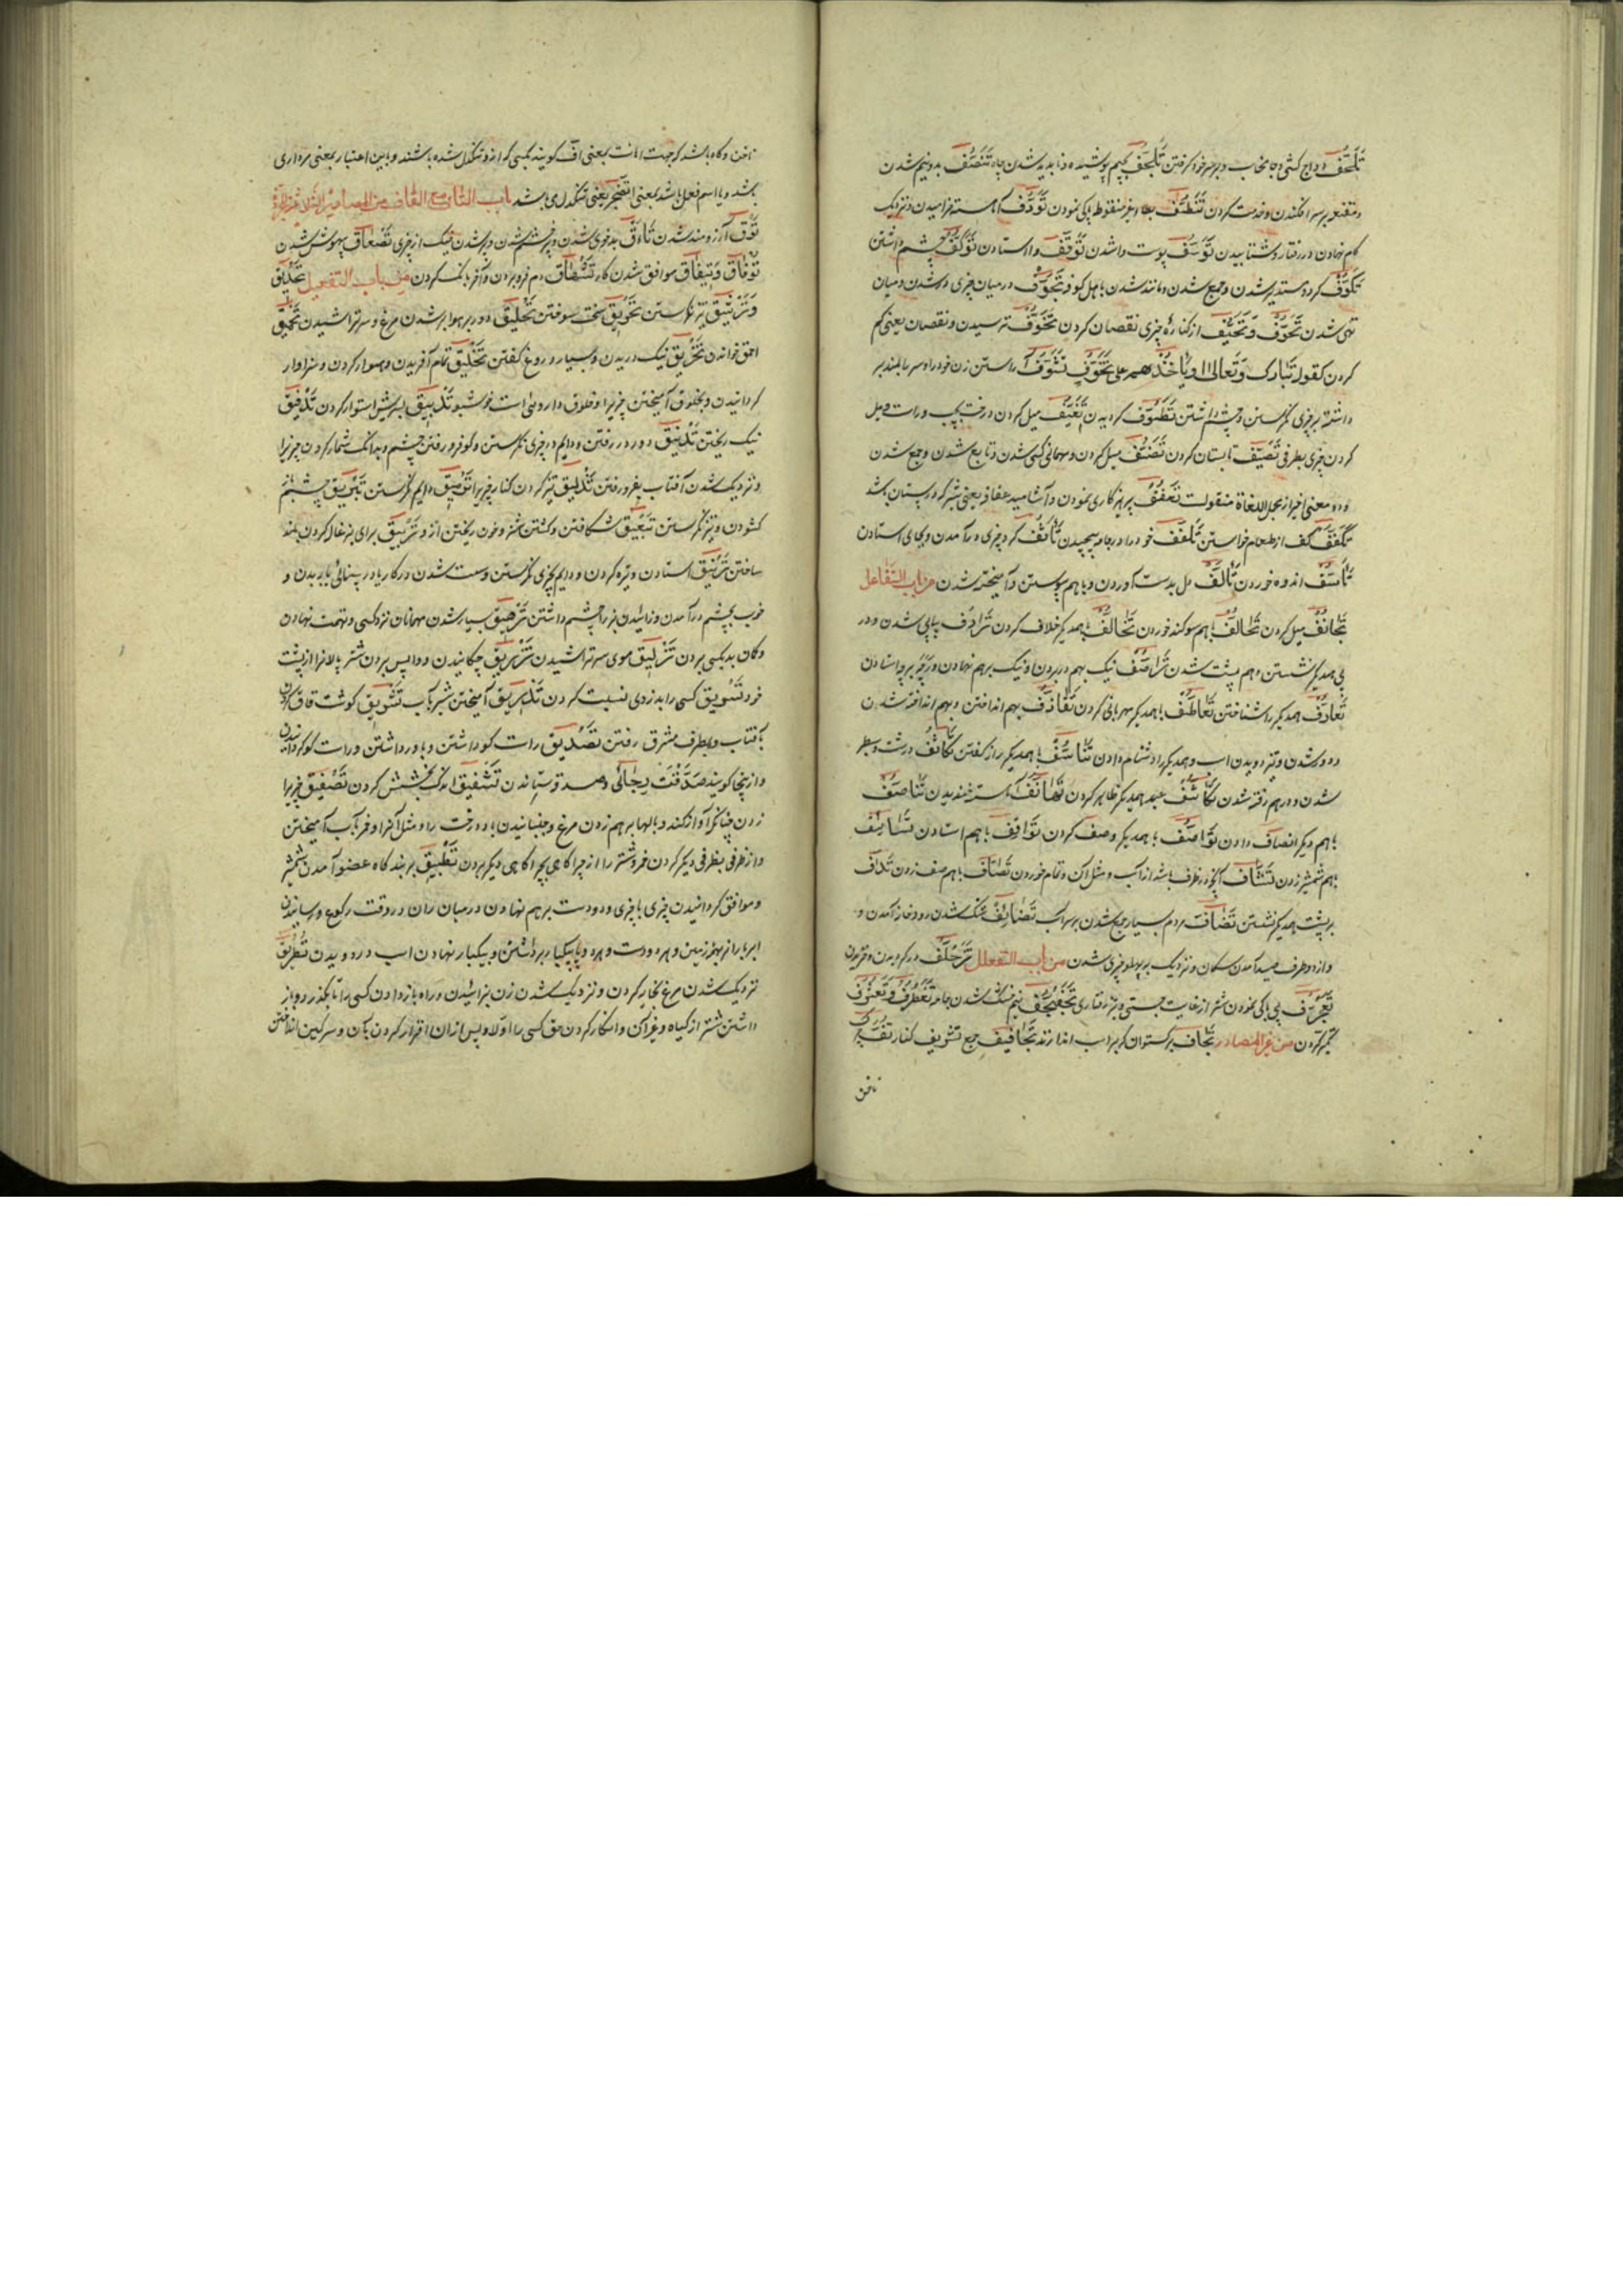 تَلَحُّفْ دواج کشی و جامه خاب و بر سر خود گرفتن تَلَجُّفْ بجیم پوشیده و ناپدید شدن چاه تَنَصُّفْ بدو نیم شدن
و مقنعه بر سر افکندن و خدمت کردن تَنَطُّفْ منقوطه پاکی نمودن تَوَذُّفْ آهسته خرامیدن و نزدیک
کام نهادن در رفتار و شتابیدن تَوَسُّفْ پوست واشدن تَوَقُّفْ وااستادن تَوَکُّفْ چشم داشتن
تَکَوُّفْ گرد و مستدیر شدن و جمع شدن و مانند شدن باهل کوفه تَجَوُّفْ درمیان چیزی در شدن و میان
تهی شدن تَحَوُّفْ وَتَحَیُّفْ از کناره چیزی نقصان کردن تَخَوُّفْ ترسیدن و نقصان یعنی کم
کردن کقوله تَبَارَکَ وَتَعَالیٰ اَوْ یَأْخُذَهُمْ عَلیٰ تَخَوُّفٍ تَشَوُّفْ آراستن زن خود را و سر بالا بلند بر
داشته بچیزی نگرستن و چشم داشتن تَطَوُّفْ گردیدن تَغَیُّفْ میل کردن درخت بچپ و راست و میل
کردن چیزی بطرفی تَصَیُّفْ تابستان کردن تَضَیُّفْ میل کردن و مهمانی کسی شدن و تابع شدن و جمع شدن
و دو معنی اخیر از مجمل اللغاة منقولست تَعَفُّفْ پرهیزکاری نمودن و آشامیدن عفافه یعنی شیر که در پستان باشد
تَکَفُّفْ کف از طعام خواستن تَلَفُّفْ خود را در جامه پیچیدن تَأَنُّفْ گرد چیزی در آمدن و بجای استادن
تَأَسُّفْ اندوه خوردن تَأَلُّفْ دل بدست آوردن و باهم پیوستن و آمیخته شدن من باب التفاعل
تَجَانُفْ میل کردن تَحَالُفْ باهم سوگند خوردن تَخَالُفْ باهمدیگر خلاف کردن تَرَادُفْ پیاپی شدن و در
پی همدیگر نشستن و هم پشت شدن تَرَاصُفْ نیک بهم در بردن و نیک برهم نهادن
تَعَارُفْ همدیگر را شناختن تَعَاطُفْ باهمدیگر مهربانی کردن تَقَاذُفْ بهم انداختن و بهم انداخته شدن
و دور شدن و تیز دویدن اسب و همدیگر را دشنام دادن باهمدیگر راز گفتن تَکَاثُفْ درشت و سطبر
شدن و درهم رفته شدن تَکَاشُفْ عیب همدیگر ظاهر کردن تَهَانُفْ آهسته خندیدن تَنَاصُفْ
باهم دیگر انصاف دادن تَوَاصُفْ باهمدیگر وصف کردن تَوَاقُفْ باهم استادن تَسَایُفْ
باهم شمشیر زدن تَشَافّ آنچه در ظرف باشد از آب و مثل آن تمام خوردن تَصَافّ باهم صف زدن تَدَافّ
بر پشت همدیگر نشستن تَضَافّ مردم بسیار جمع شدن بر سر آب تَضَایُفْ تنک شدن رودخانه آمدن و
و از دو طرف صید آمدن سگان و نزدیک به پهلو چیزی شدن من باب التفعلل تَزَحْلُفْ در گردیدن و غزیدن
تَعَجْرُفْ بی باکی نمودن شتر از غایت چستی و تیز رفتاری تَجَفْجُفْ نیم خشک شدن جامه تَغَطْرُفْ وَتَغَتْرُفْ
تکبر کردن من غیر المصادر تِجْفَافْ برگستوان که بر اسب اندازند تَجَافِیفْ جمع
ناخن
ناخن و گاه باشد که جهت اهانت بمعنی افّ گویند بکسی که از و تنگدل شده باشند و باین اعتبار بمعنی مرداری
باشد و یا اسم فعل باشد بمعنی اَتَضَجَّرُ یعنی تنگدل می باشد باب التاء مع القاف من المصادر الثلاثی المجرد
تَوْقْ آرزومند شدن تَأَقْ بدخوی شدن و پر خشم شدن و پر شدن نیک از چیزی تَصْعَاقْ بیهوش شدن
تَوْفَاقْ وَتِیفَاقْ موافق شدن کار تَشْهَاقْ دم فرو بردن و آخر بانک کردن من باب التفعیل تَحْدِیقْ
وَتَرْنِیقْ تیز نگرستن تَحْرِیقْ سخت سوختن تَحْلِیقْ دور بر هوا بر شدن مرغ و سر تراشیدن تَحْمِیقْ
احمق خواندن تَخْرِیقْ نیک دریدن و بسیار دروغ گفتن تَخْلِیقْ تمام آفریدن و هموار کردن و سزاوار
گردانیدن و بخلوق آمیختن چیزی را و خلوق داروئی است خوشبو تَدْبِیقْ بسریش استوار کردن تَدْفِیقْ
نیک ریختن تَدْنِیقْ دور در رفتن و دایم در چیزی نگرستن و گو فرو رفتن چشم و بدانک شمار کردن چیزی را
و نزدیک شدن آفتاب بغرو رفتن تَذْلِیقْ تیز کردن کنار چیزی را تَرْمِیقْ دایم نگرستن تَبْرِیقْ چشم باز
گشودن و تیز نگرستن تَبْعِیقْ شکافتن و کشتن شتر و خون ریختن از و تَرْبِیقْ برای بزغاله کردن بند
ساختن تَرْنِیقْ استادن و تیره کردن و دایم بچیزی نگرستن و سست شدن در کار یا در بینائی یا در بدن و
خوب بچشم در آمدن و زائیدن بز را چشم داشتن تَرْهِیقْ بسیار شدن مهمانان نزد کسی و تهمت نهادن
و گمان بد بکسی بردن تَزْلِیقْ موی سر تراشیدن تَزْرِیقْ چکانیدن و واپس بردن شتر پالانرا از پشت
خود تَسْرِیقْ کسی را بدزدی نسبت کردن تَمْذِیقْ آمیختن شیر بآب تَشْرِیقْ گوشت قاق کردن
بآفتاب و بطرف مشرق رفتن تَصْدِیقْ راست گو داشتن و باور داشتن و راست گو گردانیدن
و ازینجا گویند صَدَّقَتْ رِجَالیٰ و صدقه ستاندن تَشْفِیقْ اندک بخشش کردن تَصْفِیقْ چیزی را
زدن چنانکه آواز کند و بالها برهم زدن مرغ و جنبانیدن باد درخت را و مثل آنرا و خمر بآب آمیختن
و از ظرفی بظرفی دیگر کردن خمر و شتر را از چراگاهی بچراگاهی دیگر بردن تَطْبِیقْ بر بندگاه عضو آمدن شمشیر
و موافق گردانیدن چیزی با چیزی و دو دست برهم نهادن درمیان ران در وقت رکوع و رسانیدن
ابر باران بهر زمین و هر دو دست و هر دو پا بیکبار برداشتن و بیکبار نهادن اسب در دویدن تَطْرِیقْ
نزدیک شدن مرغ بخایه کردن و نزدیک شدن زن بزائیدن و راه باز دادن کسی را تا بگذرد و باز
داشتن شتر از گیاه و غیر آن و انکار کردن حق کسی را اولا و پس از آن اقرار کردن بآن و سرگین انداختن